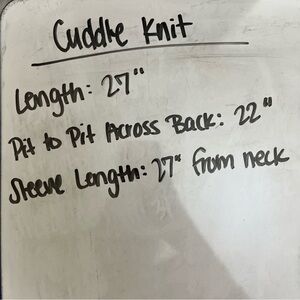 Cuddle Knit
Length: 27"
Pit to Pit Across Back: 22"
Sleeve Length: 27" from neck